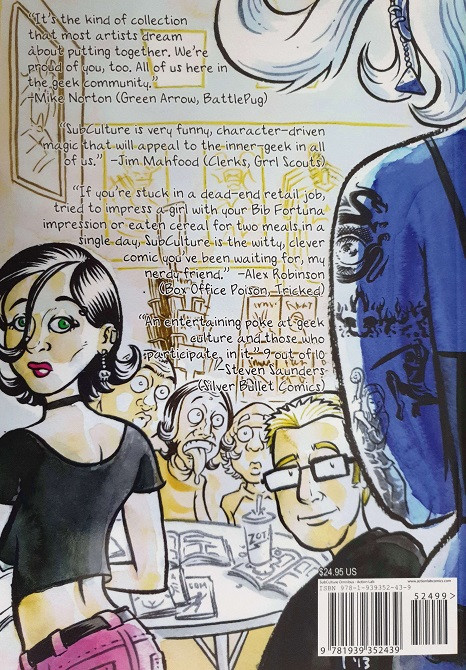 "It's the kind of collection
that most artists dream
about putting together. We're
proud of you, too. All of us here in
the geek community."
-Mike Norton (Green Arrow, BattlePug)
"SubCulture is very funny, character-driven
magic that will appeal to the inner-geek in all
of us." -Jim Mahfood (Clerks, Grrl Scouts)
"If you're stuck in a dead-end retail job,
tried to impress a girl with your Bib Fortuna
impression or eaten cereal for two meals in a
single day, SubCulture is the witty, clever
comic you've been waiting for, my
nerdy friend." -Alex Robinson
(Box Office Poison, Tricked)
"An entertaining poke at geek
culture and those who
participate, in it." 9 out of 10
-Steven Saunders
(Silver Bullet Comics)
ZOT!
$24.95 US
SubCulture Omnibus - Action Lab
www.actionlabcomics.com
ISBN 978-1-939352-43-9
52499>
9 781939 352439
'13